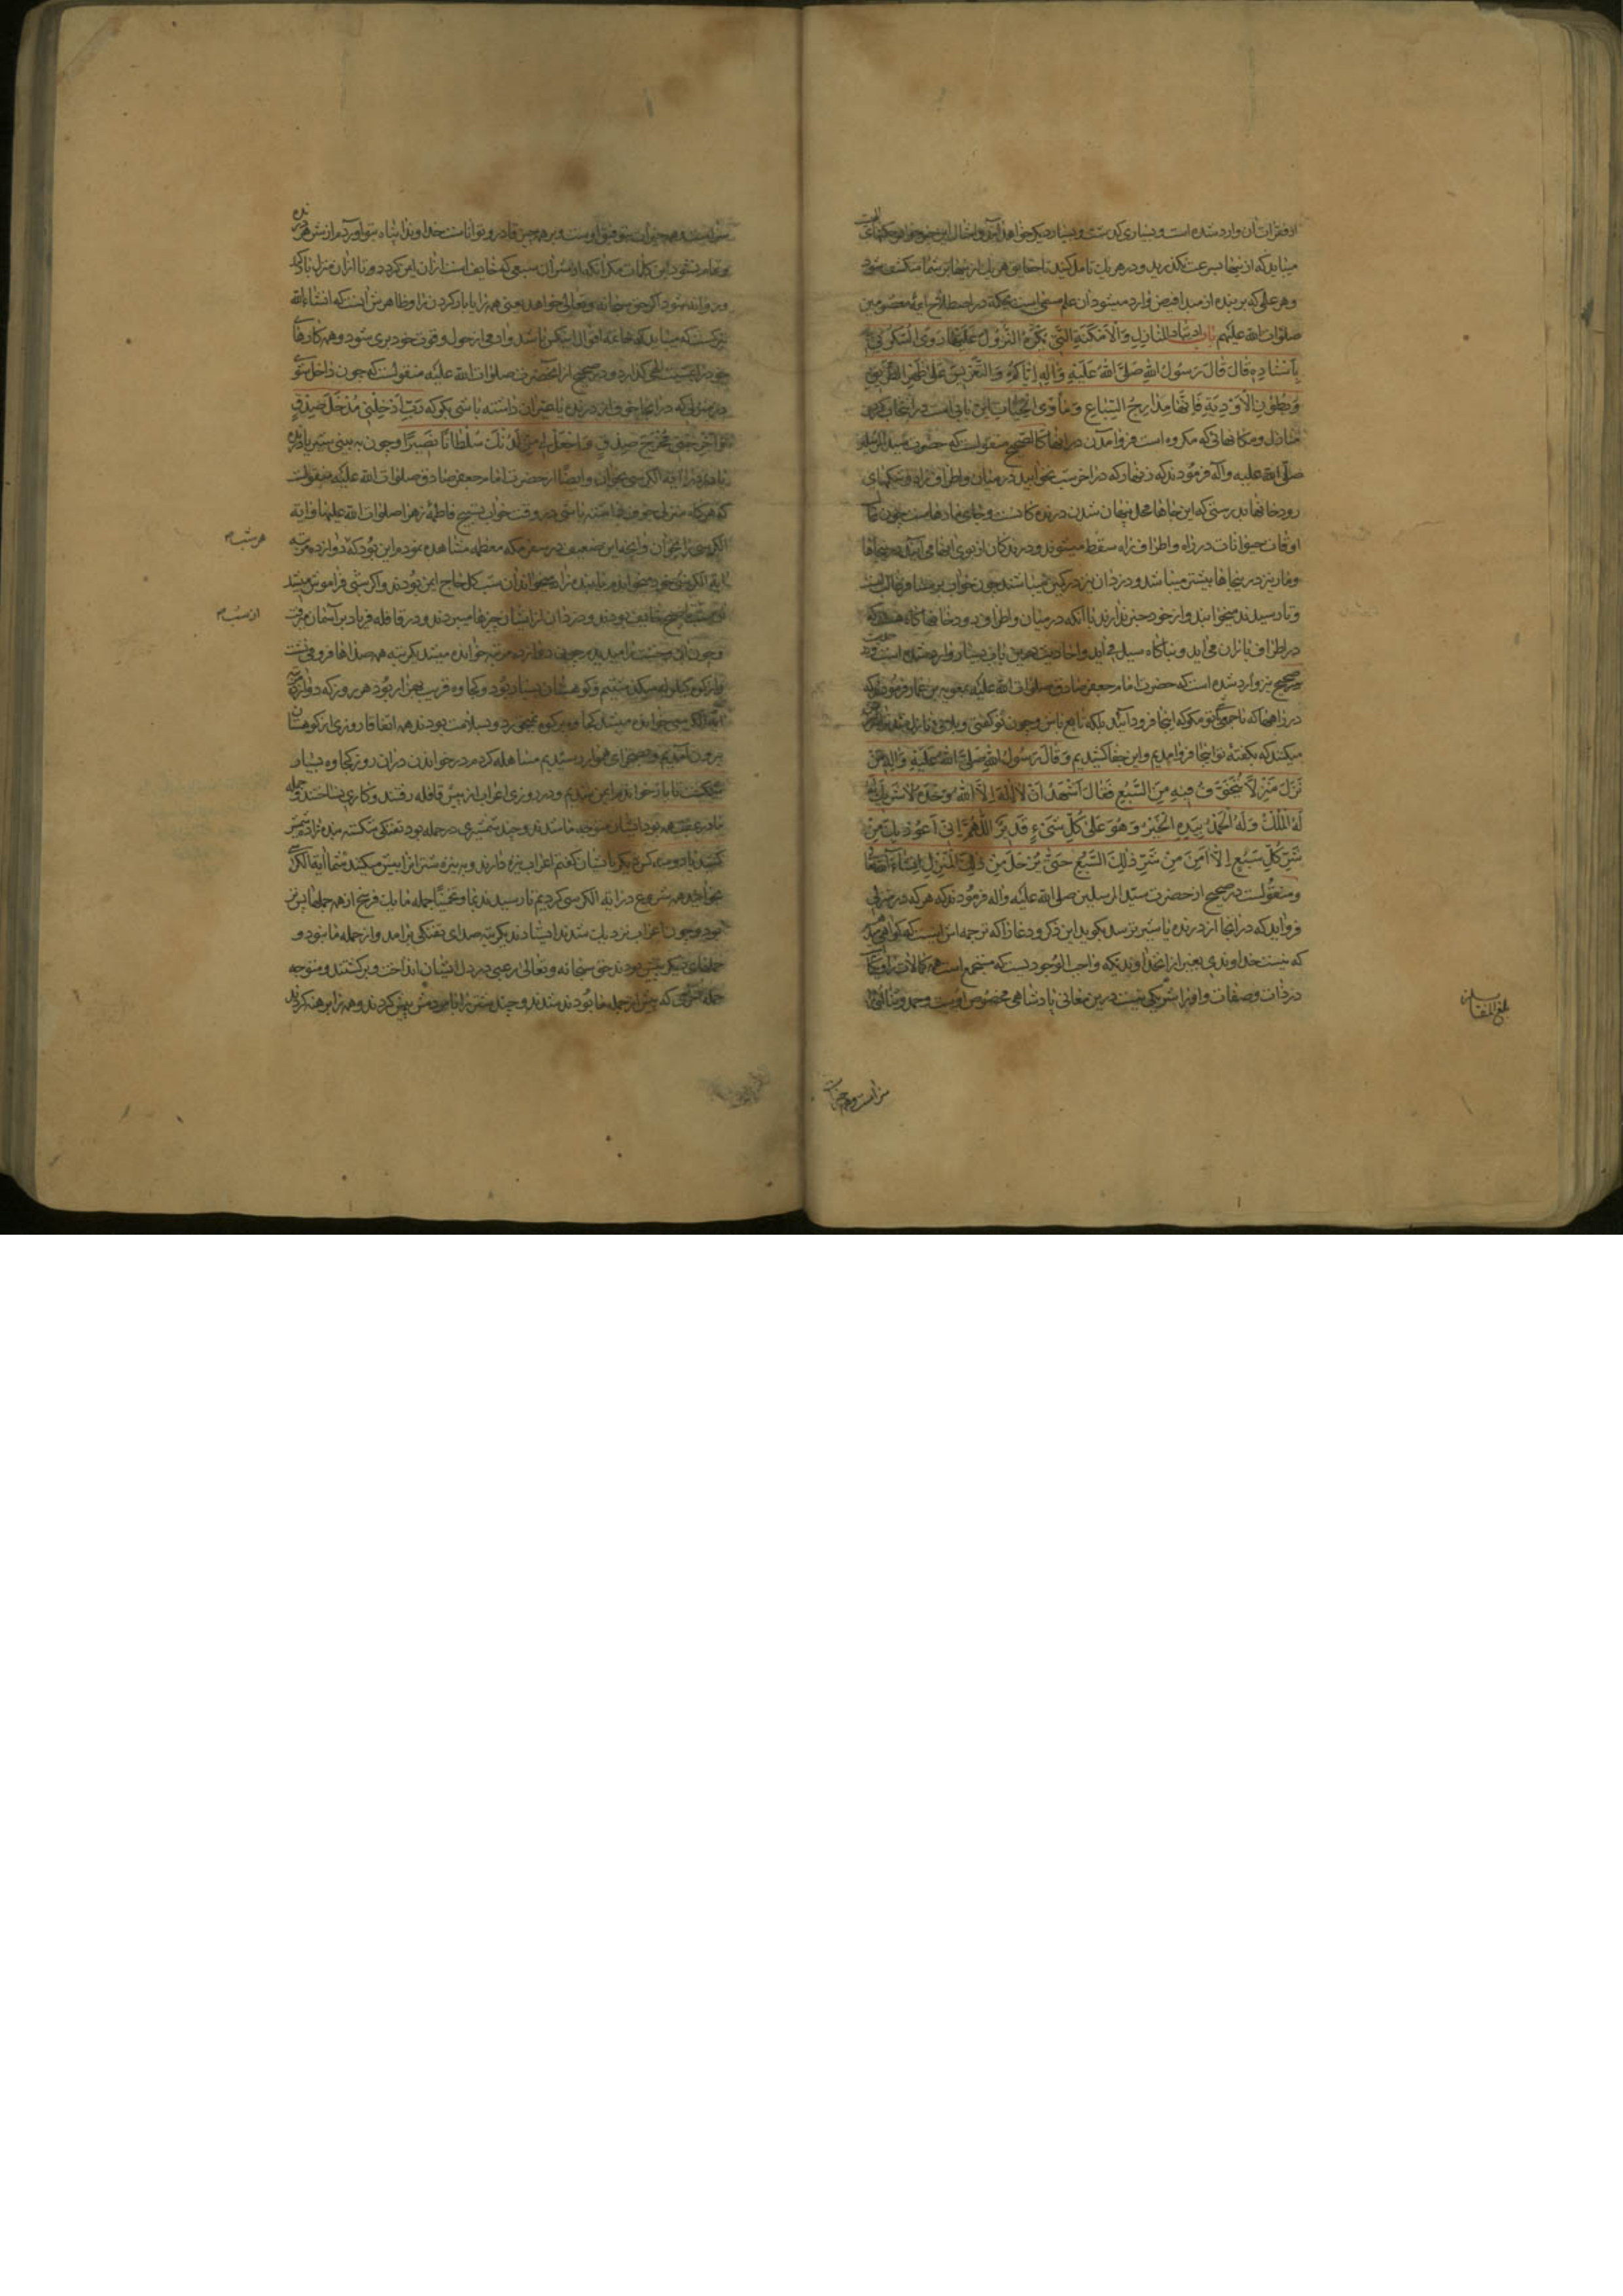 از فقرات آن وارد شده است و بسیاری گذشت و بسیار دیگر خواهد آمد و اجمال این
میباید که از اینها بسرعت نگذرید و در هر یک تامل کنید تا حقایق هر یک از اینها بر شما منکشف شود
و هر علمی که بر بنده از مبدا فیض وارد میشود آن علم مسمی است بحکمة در اصطلاح ائمه معصومین
صلوات الله علیهم باب ارتیاد المنازل والامکنة التی یکره النزول علیها روی السکونی
باسناده قال قال رسول الله صلی الله علیه وآله ایاکم والتعریس علی ظهر الطریق
وبطون الاودیة فانها مدارج السباع ومأوی الحیات این بابی است در انتخاب کردن
منازل و مکانهائی که مکروه است فرود آمدن در آنها کالصحیح منقولست که حضرت سید المرسلین
صلی الله علیه وآله فرمودند که زنهار که در آخر شب نخوابید در میان و اطراف راه و شکمهای
رودخانها بدرستی که این جاها محل پنهان شدن درنده کانست و جای مارهاست چون
اوقات حیوانات در راه و اطراف راه سقط میشوند و درندکان از بوی آنها می آیند
و مار نیز در اینجاها بیشتر میباشد و دزدان نیز در کمین میباشند چون خواب بر مسافر غالب است
و تا رسیدند میخوابند و از خود خبر ندارند با آنکه در میان و اطراف رودخانها گاه هست که
در اطراف باران می آید و بناگاه سیل می آید و احادیث درین باب بسیار وارد شده است و در
صحیح نیز وارد شده است که حضرت امام جعفر صادق صلوات الله علیه بمعویه بن عمار فرمودند که
در راهها که با جمعی تو مگو که اینجا فرود آئید بلکه تابع باش و چون تو گفتی و بلائی نازل شد
میکنند که بگفته تو اینجا فرود آمدیم و این جفا کشیدیم وقال رسول الله صلی الله علیه وآله من
نزل منزلا یتخوف فیه من السبع فقال اشهد ان لا اله الا الله وحده لا شریک له
له الملک وله الحمد بیده الخیر وهو علی کل شیء قدیر اللهم انی اعوذ بک من
شر کل سبع الا امن من شر ذلک السبع حتی یرحل من ذلک المنزل انشاء الله
و منقولست در صحیح از حضرت سید المرسلین صلی الله علیه وآله فرمودند که هر که در منزلی
فرو آید که در آنجا از درنده یا سبع ترسد بگوید این ذکر و دعا را که ترجمه اش اینست که گواهی میدهم
که نیست خداوندی بغیر از خداوندیکه واجب الوجودیست که مستجمع است همه کمالات را و یگانه
در ذات و صفات و او را شریکی نیست درین معانی پادشاهی مخصوص اوست و حمد و ثنا
بلغ المقابله
سزا است و همه خیرات
سزا است و همه خیرات بتوفیق اوست و بر همه چیز قادر و تواناست خداوندا پناه بتو آوردم از شر هر درنده
و تمام نشود این کلمات مگر آنکه از شر آن سبعی که خایف است ازان ایمن گردد و تا ازان منزل بار کند
و روانه شود اگر حق سبحانه و تعالی خواهد یعنی همه را بیاد کردن خدا و ظاهرش آنست که انشاء الله
خود را بمشیت الهی گذارد و در صحیح از آنحضرت صلوات الله علیه منقولست که چون داخل شوی
در منزلی که در آنجا خوف از درنده یا غیر آن داشته باشی بگو که رب ادخلنی مدخل صدق
واخرجنی مخرج صدق واجعل لی من لدنک سلطانا نصیرا و چون به بینی شیر یا درنده
آیة الکرسی بخوان و ایضا از حضرت امام جعفر صادق صلوات الله علیه منقولست
که هرگاه منزل خوف داشته باشی در وقت خواب تسبیح فاطمه زهرا صلوات الله علیها و آیة
الکرسی را بخوان و آنچه این ضعیف در سفر مکه معظمه مشاهده نمودم این بود که دوازده مرتبه
هر شب
آیة الکرسی خود میخواندم تا بنده زاده میخواند آن شب کل حاج ایمن بودند و اگر شبی فراموش میشد
خایف بودند و دزدان از ایشان چیزها میبردند و در قافله فریاد بر آسمان میرفت
از شب
و چون آن دوازده مرتبه خوانده میشد یکمرتبه همه صداها فرو می نشست
آیة الکرسی خوانده میشد و بسلامت بودند همه اتفاقا روزی از کوهستان
بیرون آمدیم و بصحرای هموار رسیدیم مساهله کردم در خواندن دران روز کجاوه بسیار
شکست تا باز خواندم ایمن شدیم و در روزی اعراب از پیش قافله رفتند و کاری نساختند و جمله
ما در عقب همه بود ایشان متوجه ما شدند و چند شمشیری در جمله بود و تفنگی شکسته بنده زاده شمشیر
کشید با دو سه کس دیگر بایشان گفتم اعراب نیزه دارند و به نیزه شتر از پیش میکنند شما آیة الکرسی
بخوانید همه شروع در آیة الکرسی کردیم تا رسیدند بما و تخمینا جمله ما یک فرسخ از همه جملها پس تر
بود و چون اعراب نزدیک شدند ایستادند یکمرتبه صدای تفنگی برآمد و از جمله ما نبود و
جملهای دیگر پیش بودند حق سبحانه و تعالی رعبی در دل ایشان انداخت و برگشتند و متوجه
جمله که پیش از جمله ما بودند شدند و چند شتر را با مردمش پیش کردند و همه را برهنه کردند